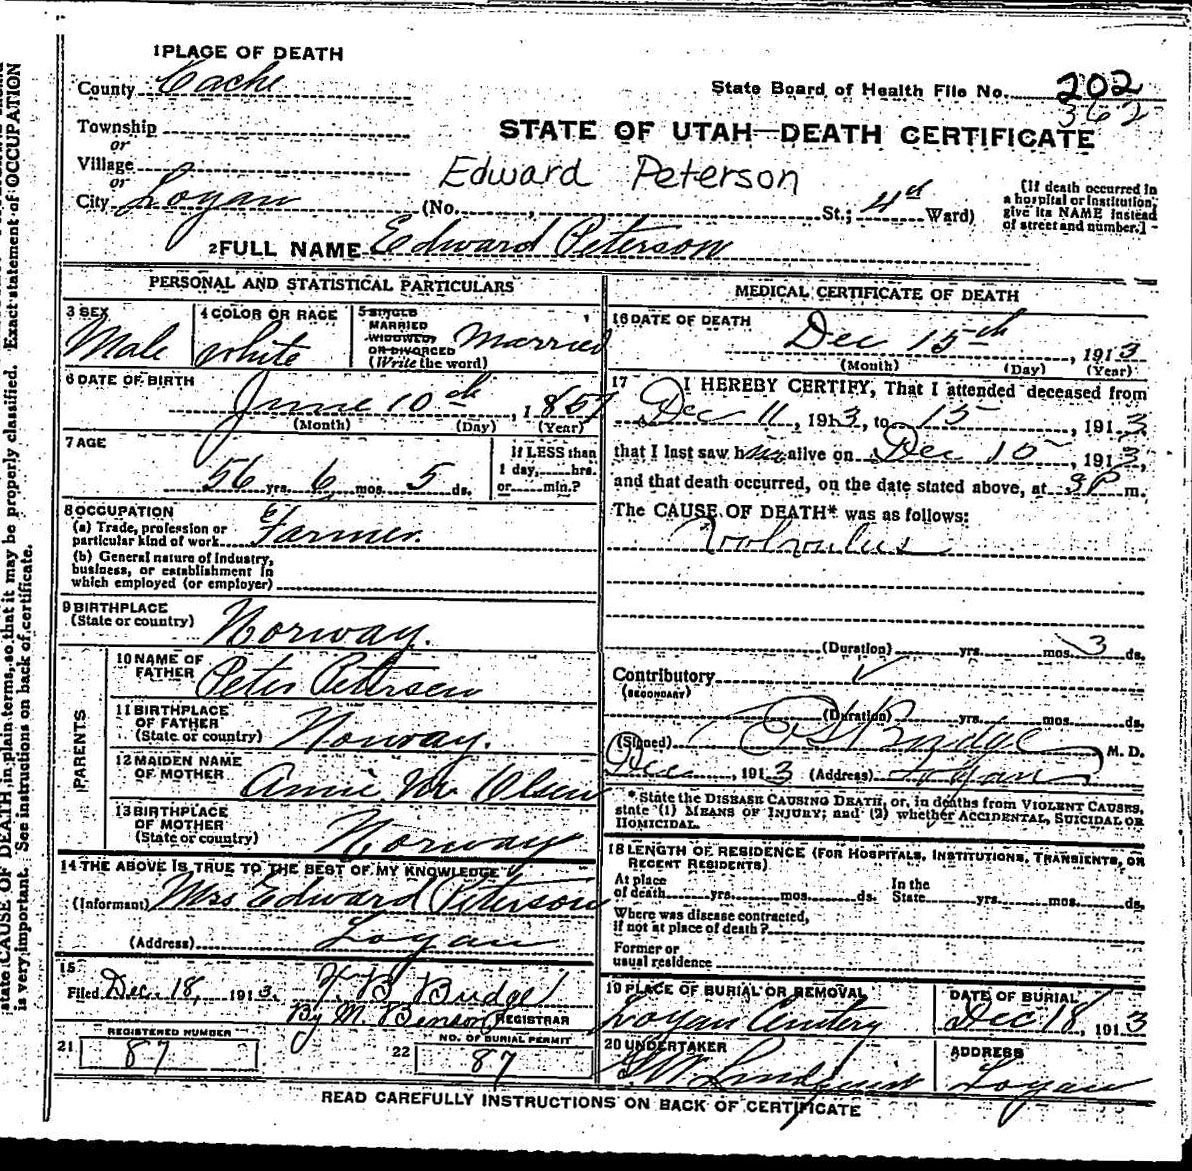 1 PLACE OF DEATH
County Cache
State Board of Health File No. 202
362
Township
or
Village
or
City Logan
STATE OF UTAH—DEATH CERTIFICATE
Edward Peterson
(No. , St.; 4th Ward)
(If death occurred in
a hospital or institution,
give its NAME instead
of street and number.)
2 FULL NAME Edward Peterson
PERSONAL AND STATISTICAL PARTICULARS
3 SEX
Male
4 COLOR OR RACE
White
5 SINGLE
MARRIED
WIDOWED,
OR DIVORCED
(Write the word)
Married
6 DATE OF BIRTH
June 10th, 1857
(Month) (Day) (Year)
7 AGE
56 yrs. 6 mos. 5 ds.
If LESS than
1 day, hrs.
or min.?
8 OCCUPATION
(a) Trade, profession or
particular kind of work Farmer
(b) General nature of industry,
business, or establishment in
which employed (or employer)
9 BIRTHPLACE
(State or country) Norway.
PARENTS
10 NAME OF
FATHER Peter Petersen
11 BIRTHPLACE
OF FATHER
(State or country) Norway.
12 MAIDEN NAME
OF MOTHER Annie Olsen
13 BIRTHPLACE
OF MOTHER
(State or country) Norway
14 THE ABOVE IS TRUE TO THE BEST OF MY KNOWLEDGE
(Informant) Mrs Edward Peterson
(Address) Logan
15
Filed Dec. 18, 1913. Budge
By M. Benson REGISTRAR
21 REGISTERED NUMBER
87
22 NO. OF BURIAL PERMIT
87
MEDICAL CERTIFICATE OF DEATH
16 DATE OF DEATH
Dec 15th, 1913
(Month) (Day) (Year)
17 I HEREBY CERTIFY, That I attended deceased from
Dec 11, 1913, to 15, 1913,
that I last saw him alive on Dec 15, 1913,
and that death occurred, on the date stated above, at 3P m.
The CAUSE OF DEATH* was as follows:
Volvulus
(Duration) yrs. mos. 3 ds.
Contributory
(SECONDARY)
(Duration) yrs. mos. ds.
(Signed) Budge M. D.
Dec, 1913 (Address) Logan
* State the DISEASE CAUSING DEATH, or, in deaths from VIOLENT CAUSES,
state (1) MEANS OF INJURY; and (2) whether ACCIDENTAL, SUICIDAL OR
HOMICIDAL.
18 LENGTH OF RESIDENCE (FOR HOSPITALS, INSTITUTIONS, TRANSIENTS, OR
RECENT RESIDENTS)
At place
of death yrs. mos. ds.
In the
State yrs. mos. ds.
Where was disease contracted,
if not at place of death?
Former or
usual residence
19 PLACE OF BURIAL OR REMOVAL
Logan Cemetery
DATE OF BURIAL
Dec 18, 1913
20 UNDERTAKER
Lundquist
ADDRESS
Logan
READ CAREFULLY INSTRUCTIONS ON BACK OF CERTIFICATE
state CAUSE OF DEATH in plain terms, so that it may be properly classified. Exact statement of OCCUPATION
is very important. See instructions on back of certificate.